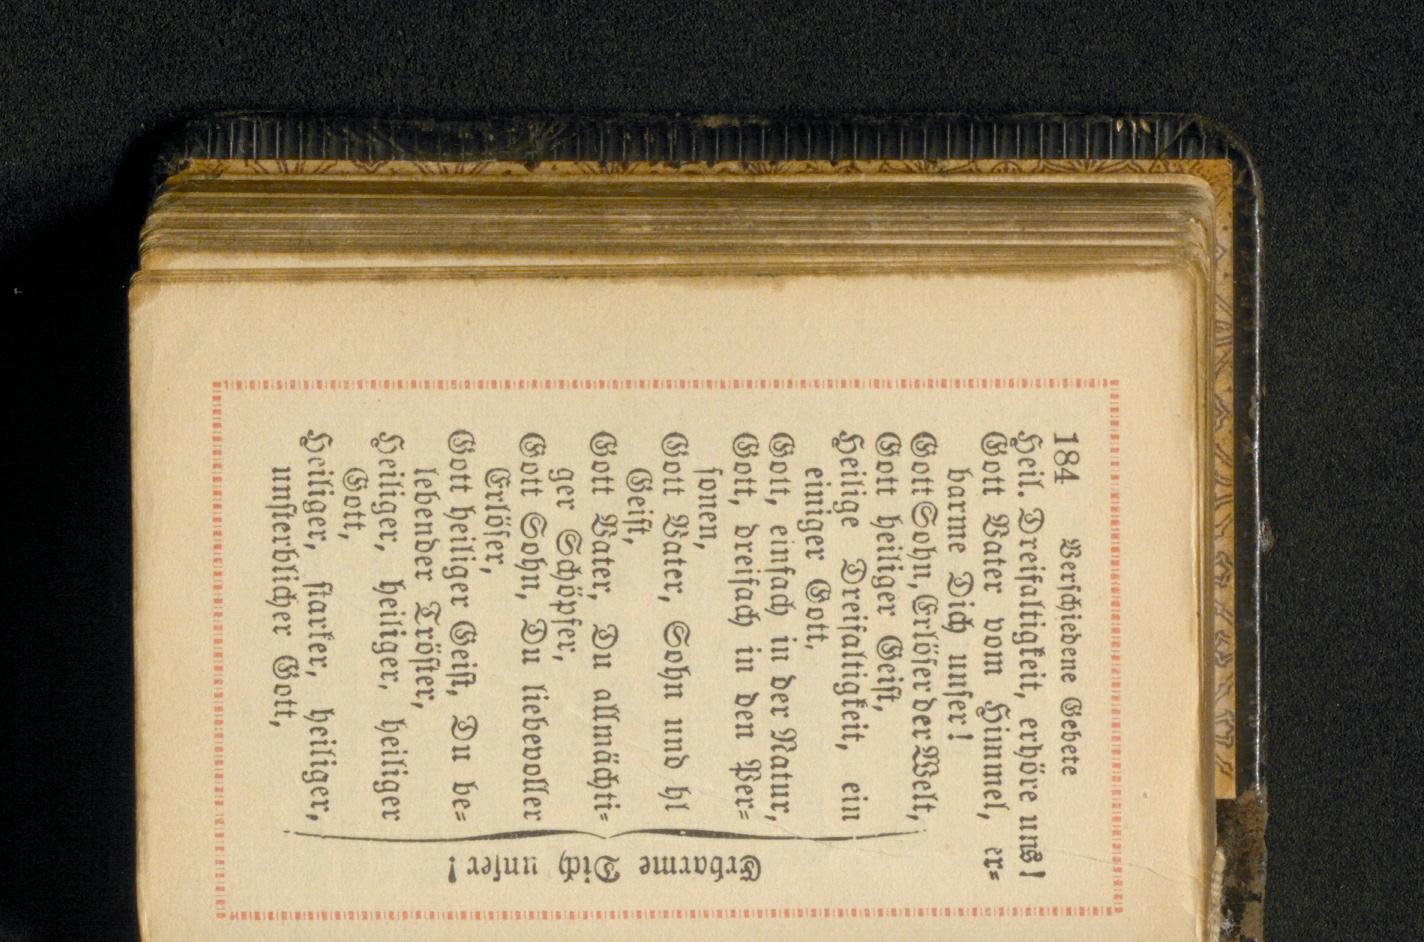 184 Verschiedene Gebete
Heil. Dreifaltigkeit, erhöre uns!
Gott Vater vom Himmel, er=
barme Dich unser!
Gott Sohn, Erlöser der Welt,
Gott heiliger Geist,
Heilige Dreifaltigkeit, ein
einiger Gott,
Gott, einfach in der Natur,
Gott, dreifach in den Per=
sonen,
Gott Vater, Sohn und hl
Geist,
Gott Vater, Du allmächti=
ger Schöpfer,
Gott Sohn, Du liebevoller
Erlöser,
Gott heiliger Geist, Du be=
lebender Tröster,
Heiliger, heiliger, heiliger
Gott,
Heiliger, starker, heiliger,
unsterblicher Gott,
Erbarme Dich unser!